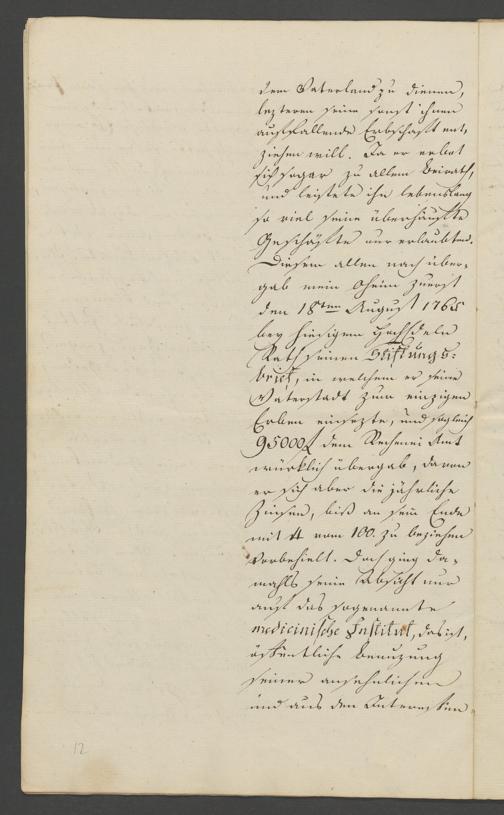 dem Vaterland zu dienen,
lezteren seine sonst ihnen
auffallende Erbschaft ent,
ziehen will. Ja er erbot
sich sogar zu allem Beirath,
und leistete ihn lebenslang
so viel seine überhäufte
Geschäfte nur erlaubten.
Diesem allen nach über,
gab mein Oheim zuerst
den 18ten August 1763
bey hiesigem HochEdeln
Rath seinen Stiftungs=
brief, in welchem er seine
Vaterstadt zum einzigen
Erben einsezte, und sogleich
95000f dem Rechenei Amt
würklich übergab, davon
er sich aber die jährliche
Zinsen, biß an sein Ende
mit 4 vom 100. zu beziehen
vorbehielt. Doch ging da,
mahls seine Absicht nur
auf das sogenannte
medicinische Institut, das ist,
öffentliche Benuzung
seiner ansehnlichen
und aus den Interessen
12